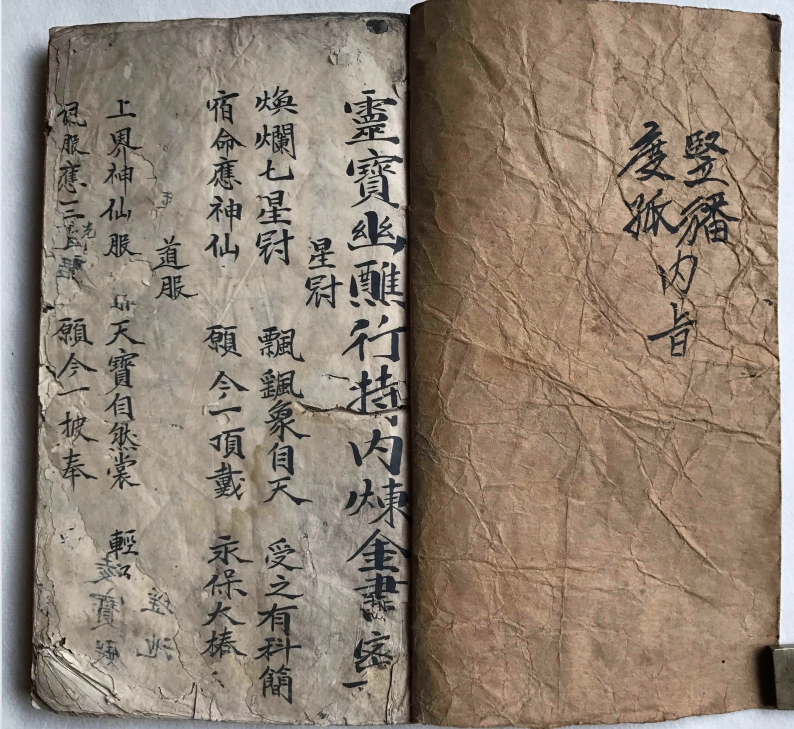 豎旛內旨
度孤
靈寶幽醮行持內煉金書密
星冠
煥爛七星冠 飄飖象自天 受之有科簡
宿命應神仙 願今一頂戴 永保大椿
道服
上界神仙服 天寶自然裳 輕
服應三 願今一披奉